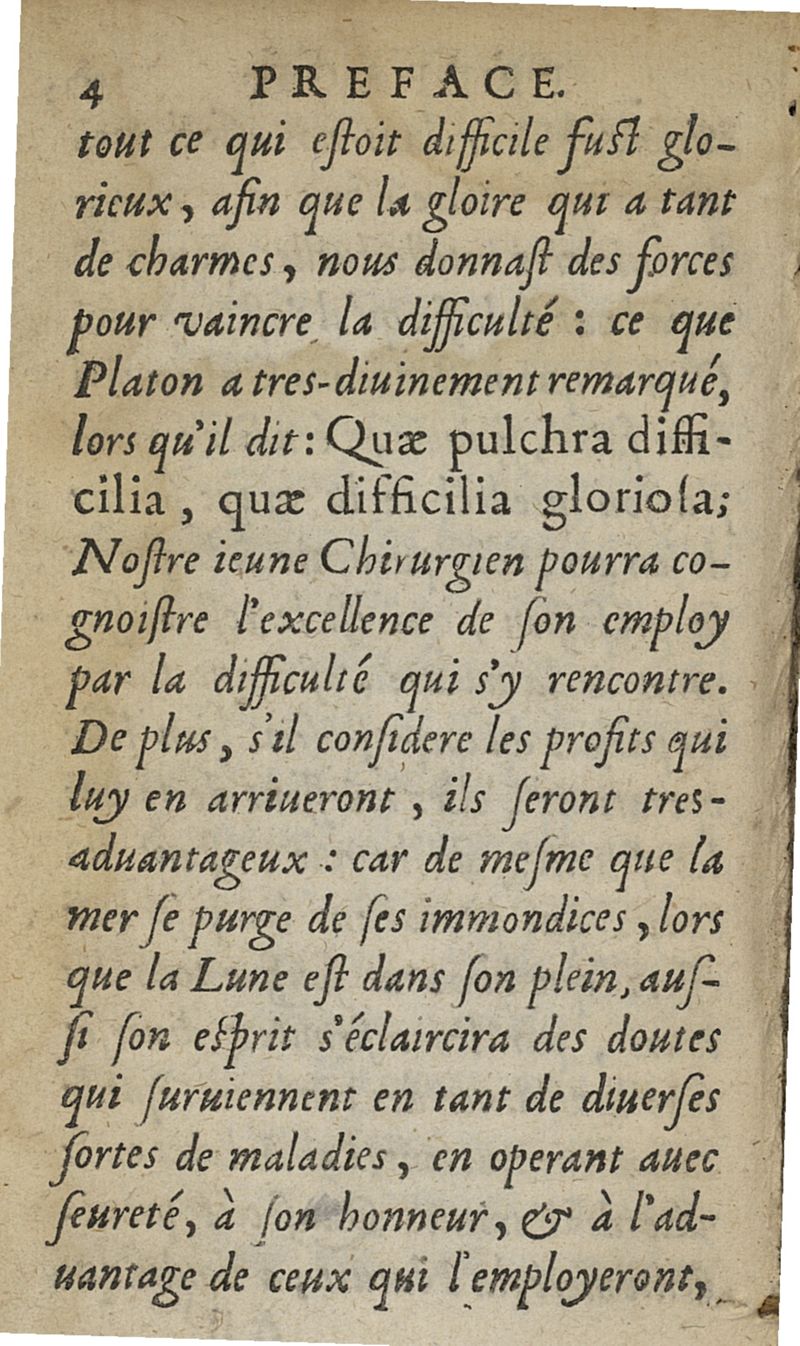 4 PREFACE.
tout ce qui eſtoit difficile fuſt glo-
rieux, afin que la gloire qui a tant
de charmes, nous donnaſt des forces
pour vaincre la difficulté : ce que
Platon a tres-diuinement remarqué,
lors qu'il dit : Quæ pulchra diffi-
cilia, quæ difficilia glorioſa;
Noſtre ieune Chirurgien pourra co-
gnoiſtre l'excellence de ſon employ
par la difficulté qui s'y rencontre.
De plus, s'il conſidere les profits qui
luy en arriueront, ils ſeront tres-
aduantageux : car de meſme que la
mer ſe purge de ſes immondices, lors
que la Lune eſt dans ſon plein, auſ-
ſi ſon eſprit s'éclaircira des doutes
qui ſuruiennent en tant de diuerſes
ſortes de maladies, en operant auec
ſeureté, à ſon honneur, & à l'ad-
uantage de ceux qui l'employeront,